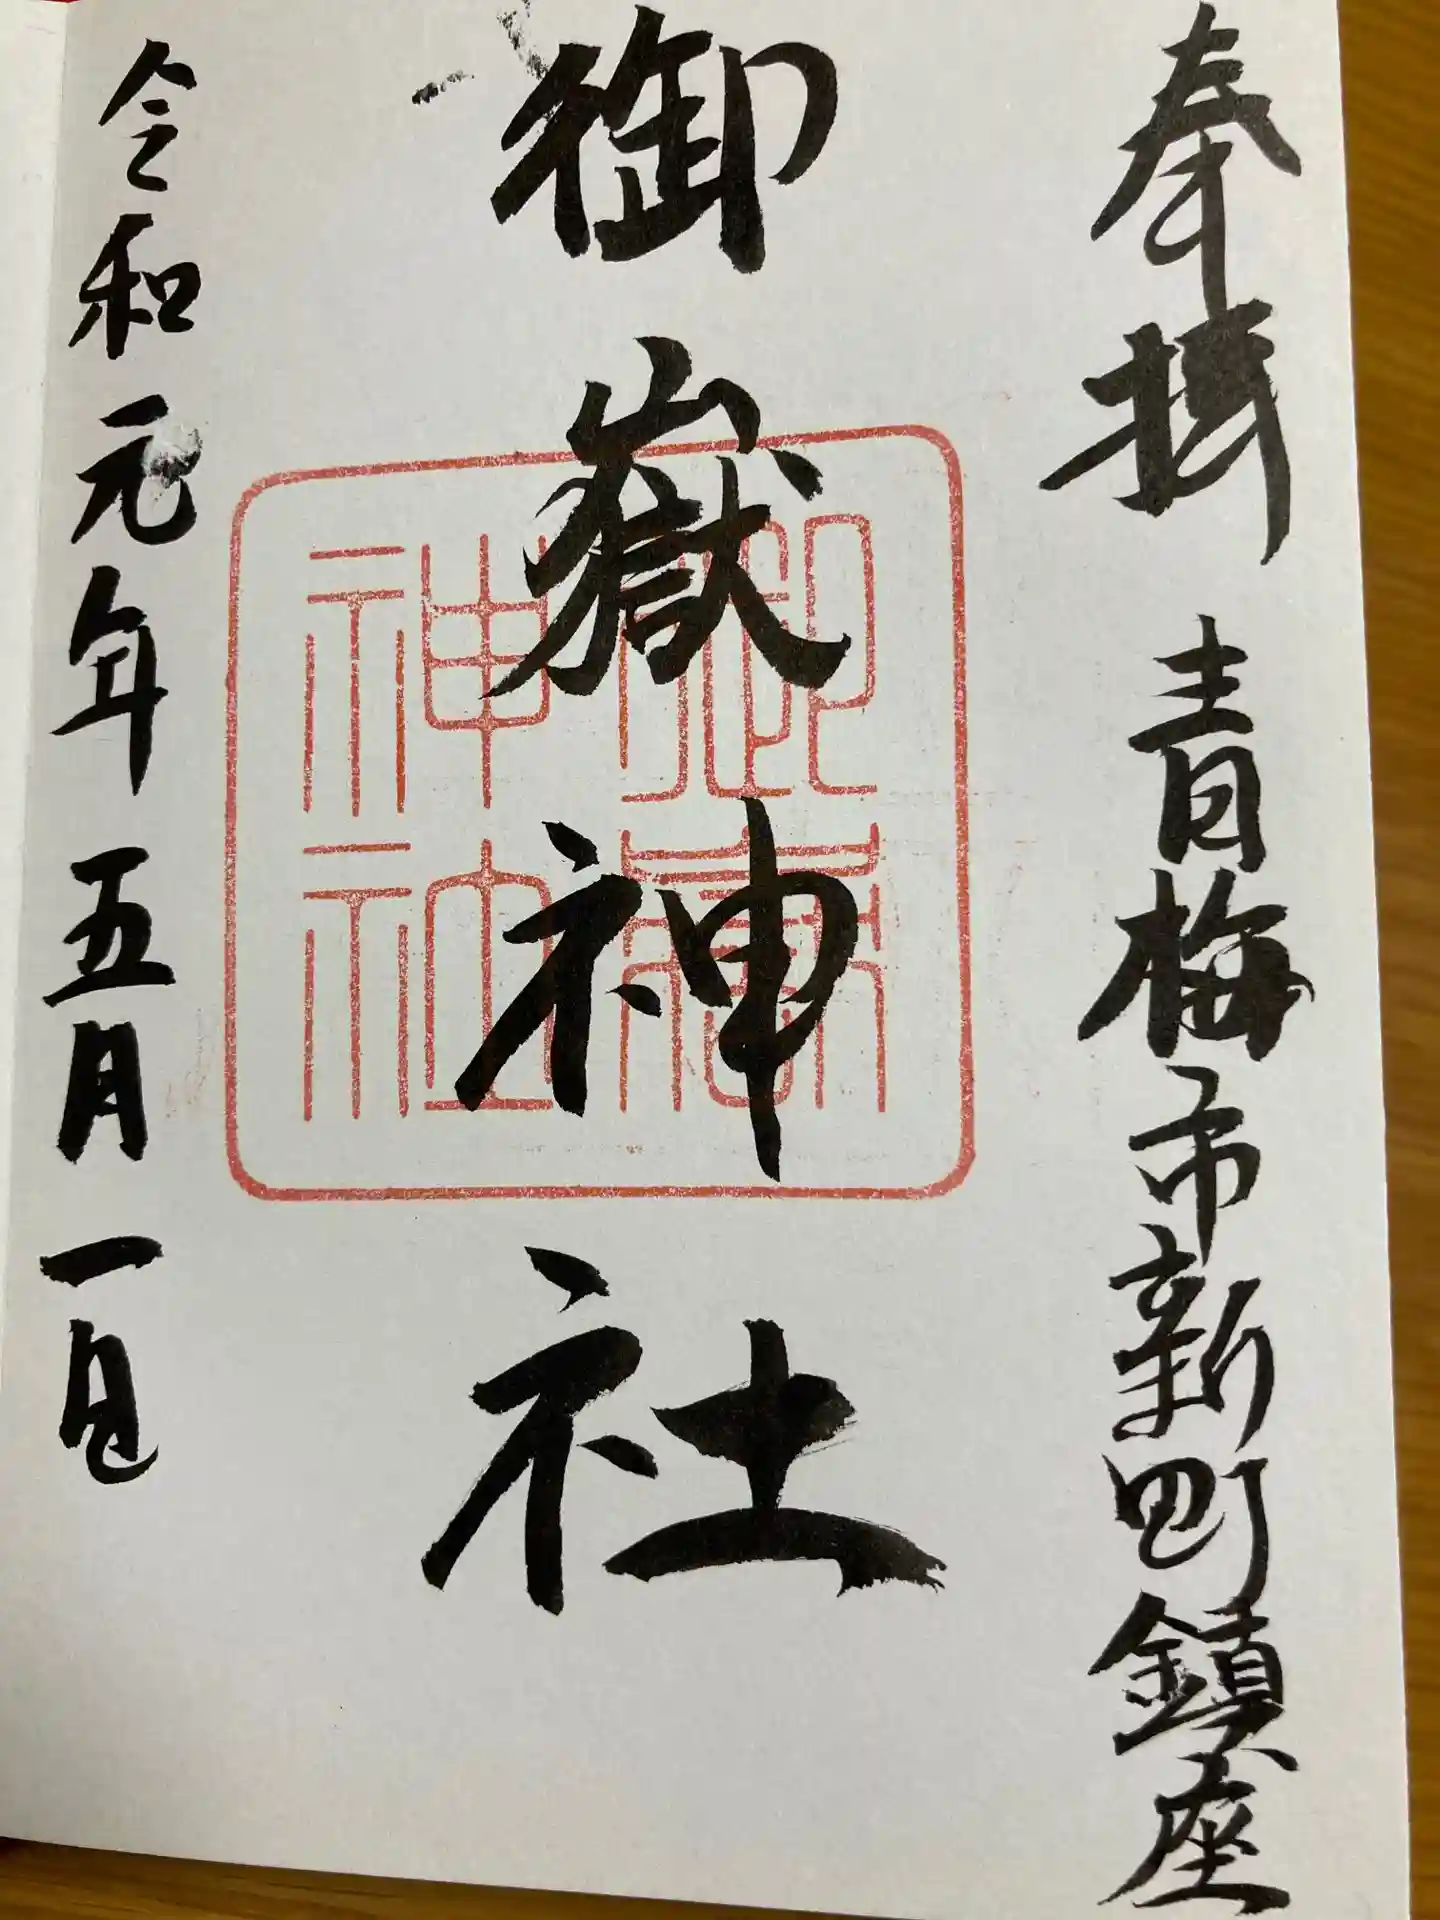 奉拝 青梅市新町鎮座
御嶽神社
御嶽
神社
令和元年五月一日